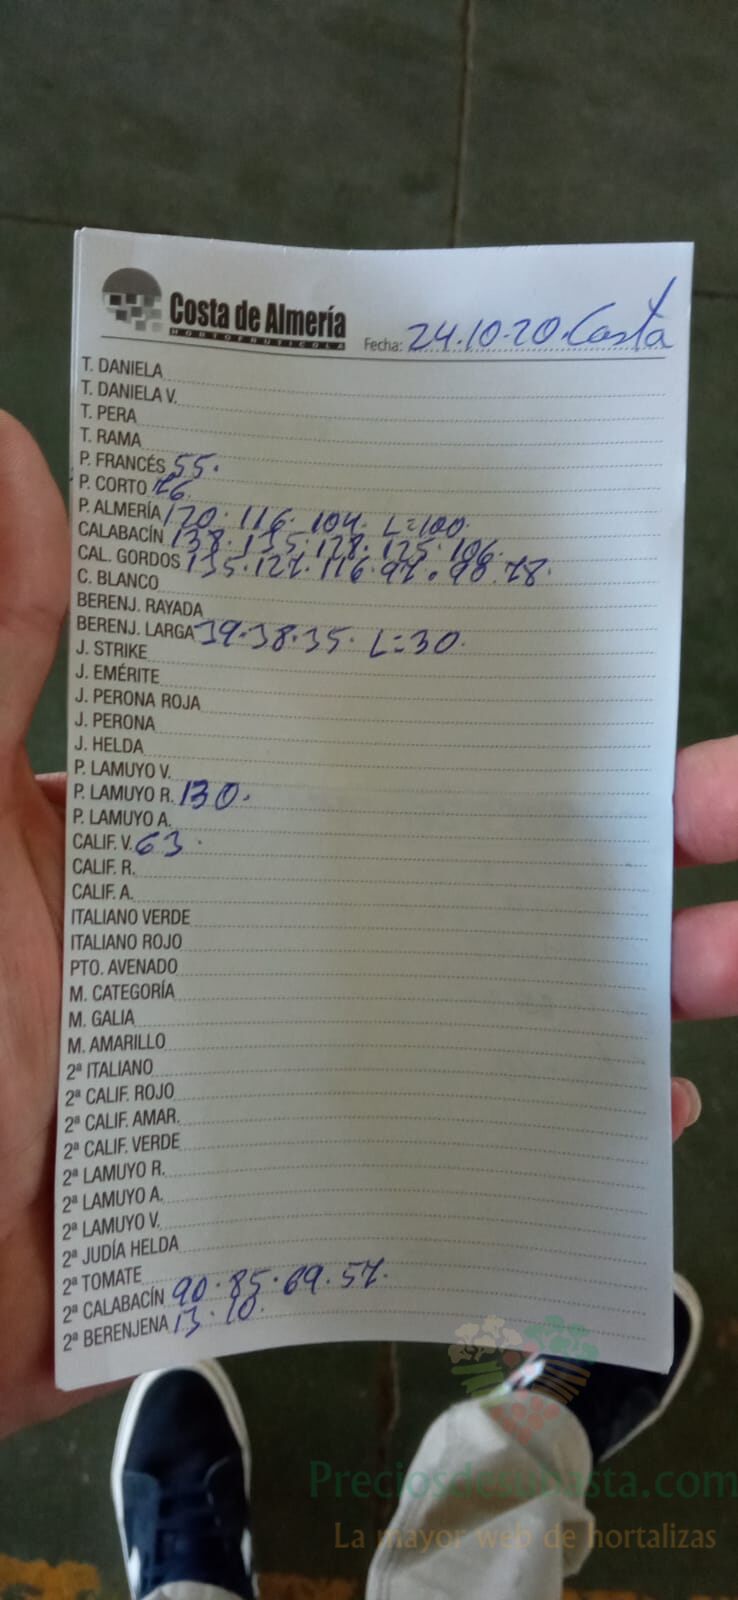 Costa de Almería
HORTOFRUTICOLA
Fecha: 24.10.20. Costa
T. DANIELA
T. DANIELA V.
T. PERA
T. RAMA
P. FRANCÉS 55.
P. CORTO 76
P. ALMERÍA 120. 116. 104. L=100.
CALABACÍN 138. 135. 128. 125. 106.
CAL. GORDOS 135. 127. 116. 97. 98. 78.
C. BLANCO
BERENJ. RAYADA
BERENJ. LARGA 39.38.35. L=30.
J. STRIKE
J. EMÉRITE
J. PERONA ROJA
J. PERONA
J. HELDA
P. LAMUYO V.
P. LAMUYO R. 130.
P. LAMUYO A.
CALIF. V. 63.
CALIF. R.
CALIF. A.
ITALIANO VERDE
ITALIANO ROJO
PTO. AVENADO
M. CATEGORÍA
M. GALIA
M. AMARILLO
2ª ITALIANO
2ª CALIF. ROJO
2ª CALIF. AMAR.
2ª CALIF. VERDE
2ª LAMUYO R.
2ª LAMUYO A.
2ª LAMUYO V.
2ª JUDÍA HELDA
2ª TOMATE
2ª CALABACÍN 90. 85. 69. 57.
2ª BERENJENA 13. 10.
Preciosdesubasta.com
La mayor web de hortalizas